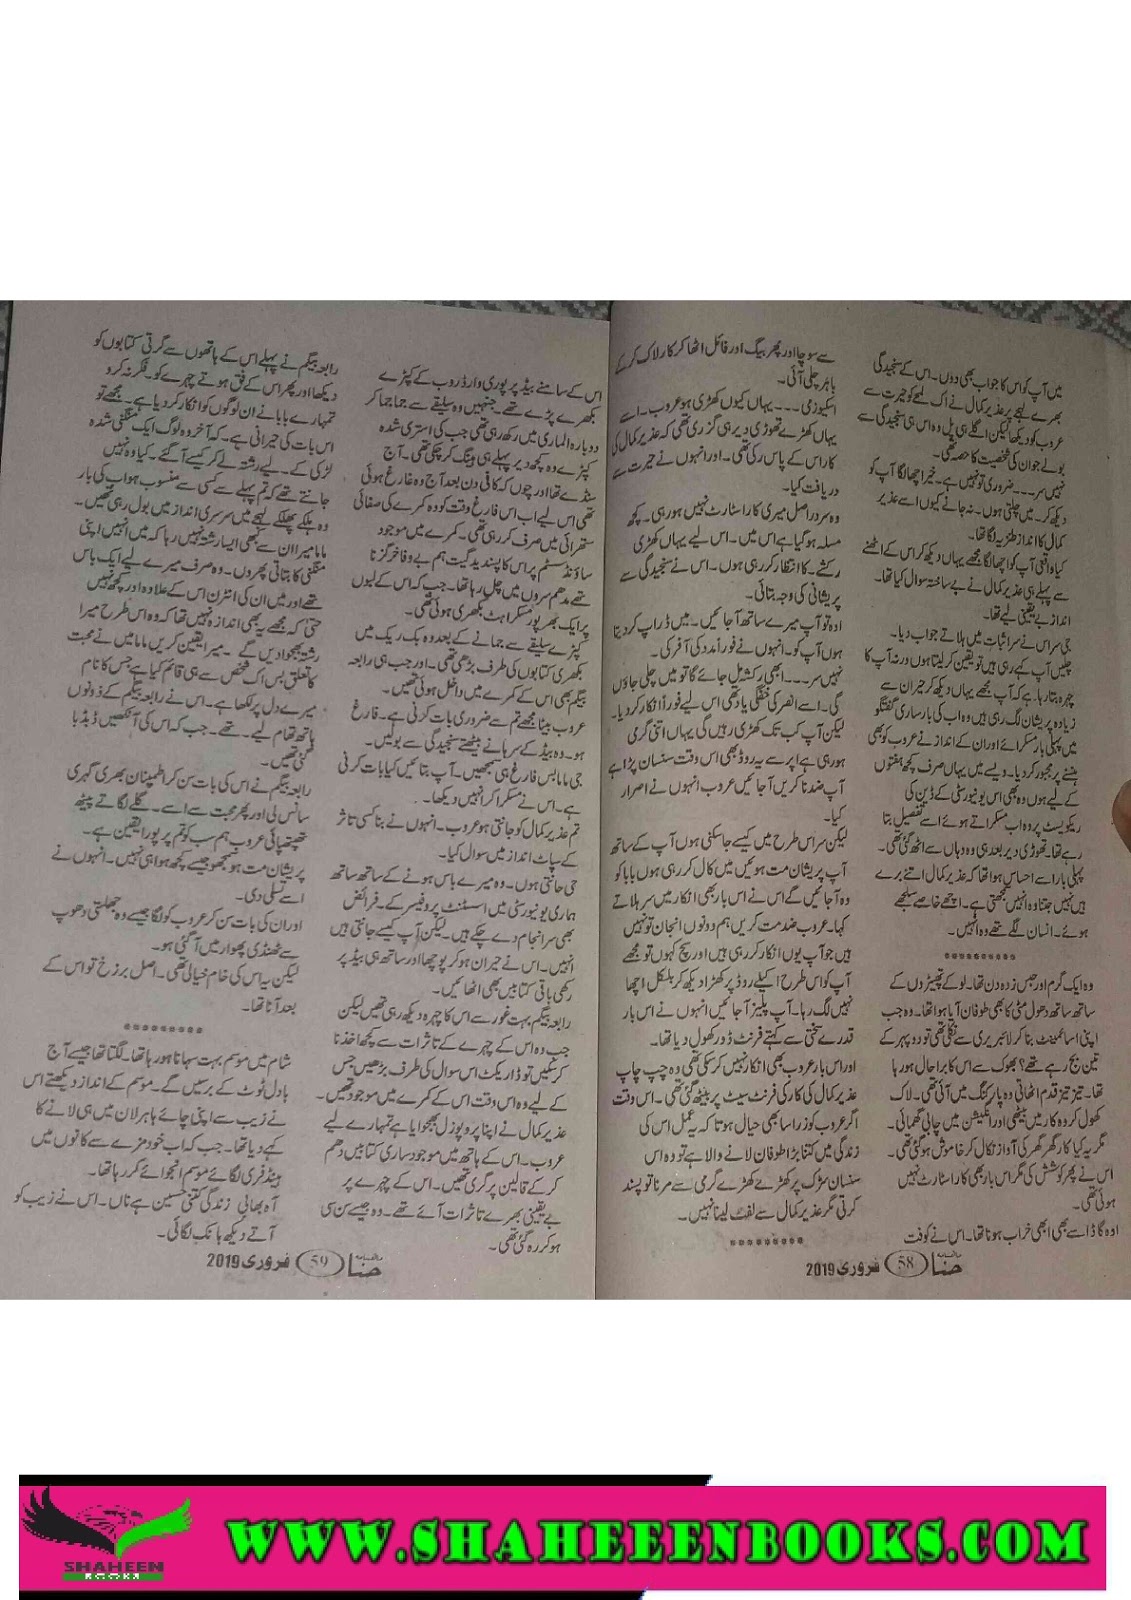 میں آپ کو اس کا جواب بھی دوں۔ اس کے سنجیدگی
بھرے لہجے پر عذیر کمال نے اک لمحے کو حیرت سے
عروب کو دیکھا لیکن اگلے ہی پل وہ اس ہی سنجیدگی سے
بولے جو ان کی شخصیت کا حصہ تھی۔
نہیں سر۔۔۔ ضروری تو نہیں ہے۔ خیر اچھا لگا آپ کو
دیکھ کر۔ میں چلتی ہوں۔ نہ جانے کیوں اسے عذیر
کمال کا انداز طنزیہ لگا تھا۔
کیا واقعی آپ کو اچھا لگا مجھے یہاں دیکھ کر اس کے اٹھنے
سے پہلے ہی عذیر کمال نے بے ساختہ سوال کیا تھا۔
انداز بے یقینی لیے تھا۔
جی سر اس نے سر اثبات میں ہلاتے جواب دیا۔
چلیں آپ کہہ رہی ہیں تو یقین کر لیتا ہوں ورنہ آپ کا
چہرہ بتا رہا ہے کہ آپ مجھے یہاں دیکھ کر حیران سے
زیادہ پریشان لگ رہی ہیں وہ اب کی بار ساری گفتگو
میں پہلی بار مسکرائے اور ان کے انداز نے عروب کو بھی
ہنسنے پر مجبور کر دیا۔ ویسے میں یہاں صرف کچھ ہفتوں
کے لیے ہوں وہ بھی اس یونیورسٹی کے ڈین کی
ریکویسٹ پر وہ اب مسکراتے ہوئے اسے تفصیل بتا
رہے تھا۔ تھوڑی دیر بعد ہی وہ وہاں سے اٹھ گئی تھی۔
پہلی بار اسے احساس ہوا تھا کہ عذیر کمال اتنے برے
ہیں نہیں جتنا وہ انہیں سمجھتی ہے۔ اچھے خاصے سلجھے
ہوئے۔ انسان لگے تھے وہ انہیں۔
**********
وہ ایک گرم اور حبس زدہ دن تھا۔ لو کے تھپیڑوں کے
ساتھ ساتھ دھول مٹی کا بھی طوفان آیا ہوا تھا۔ وہ جب
اپنی اسائمنٹ بنا کر لائبریری سے نکلی تھی تو دوپہر کے
تین بج رہے تھے؟ بھوک سے اس کا برا حال ہو رہا
تھا۔ تیز تیز قدم اٹھاتی وہ پارکنگ میں آئی تھی۔ لاک
کھول کر وہ کار میں بیٹھی اور اگنیشن میں چابی گھمائی۔
مگر یہ کیا کار گھر گھر کی آواز نکال کر خاموش ہو گئی تھی۔
اس نے پھر کوشش کی مگر اس بار بھی کار اسٹارٹ نہیں
ہوئی تھی۔
اوہ گاڈ اسے بھی ابھی خراب ہونا تھا۔ اس نے کوفت
سے سوچا اور پھر بیگ اور فائل اٹھا کر کار لاک کر کے
باہر چلی آئی۔
اسکیوزمی۔۔۔ یہاں کیوں کھڑی ہو عروب۔ اسے
یہاں کھڑے تھوڑی دیر ہی گزری تھی کہ عذیر کمال کی
کار اس کے پاس رکی تھی۔ اور انہوں نے حیرت سے
دریافت کیا۔
وہ سر دراصل میری کار اسٹارٹ نہیں ہو رہی۔ کچھ
مسلہ ہو گیا ہے اس میں۔ اس لیے یہاں کھڑی
رکشے۔ کا انتظار کر رہی ہوں۔ اس نے سنجیدگی سے
پریشانی کی وجہ بتائی۔
اوہ تو آپ میرے ساتھ آ جائیں۔ میں ڈراپ کر دیتا
ہوں آپ کو۔ انہوں نے فوراً مدد کی آفر کی۔
نہیں سر۔۔۔ ابھی رکشہ مل جائے گا تو میں چلی جاؤں
گی۔ اسے انصر کی خفگی یاد تھی اس لیے فوراً انکار کر دیا۔
لیکن آپ کب تک کھڑی رہیں گی یہاں اتنی گرمی
ہو رہی ہے اوپر سے یہ روڈ بھی اس وقت سنسان پڑا ہے
آپ ضد نا کریں آ جائیں عروب انہوں نے اصرار
کیا۔
لیکن سر اس طرح میں کیسے جا سکتی ہوں آپ کے ساتھ
آپ پریشان مت ہوئیں میں کال کر رہی ہوں بابا کو
وہ آ جائیں گے اس نے اس بار بھی انکار میں سر ہلاتے
کہا۔ عروب ضد مت کریں ہم دونوں انجان تو نہیں
ہیں جو آپ یوں انکار کر رہی ہیں اور سچ کہوں تو مجھے
آپ کو اس طرح اکیلے روڈ پر کھڑا دیکھ کر بلکل اچھا
نہیں لگ رہا۔ آپ پلیز آ جائیں انہوں نے اس بار
قدرے سختی سے کہتے فرنٹ ڈور کھول دیا تھا۔
اور اس بار عروب بھی انکار نہیں کر سکی تھی وہ چپ چاپ
عذیر کمال کی کار کی فرنٹ سیٹ پر بیٹھ گئی تھی۔ اس وقت
اگر عروب کو ذرا سا بھی خیال ہوتا کہ یہ عمل اس کی
زندگی میں کتنا بڑا طوفان لانے والا ہے تو وہ اس
سنسان سڑک پر کھڑے کھڑے گرمی سے مرنا تو پسند
کرتی مگر عذیر کمال سے لفٹ لینا نہیں۔
*********
ماہنامہ حنا 58 فروری 2019
اس کے سامنے بیڈ پر پوری وارڈ روب کے کپڑے
بکھرے پڑے تھے۔ جنہیں وہ سلیقے سے جما جما کر
دوبارہ الماری میں رکھ رہی تھی جب کی استری شدہ
کپڑے وہ کچھ دیر پہلے ہی ہینگ کر چکی تھی۔ آج
سنڈے تھا اور چوں کہ کافی دن بعد آج وہ فارغ ہوئی
تھی اس لیے اب اس فارغ وقت کو وہ کمرے کی صفائی
ستھرائی میں صرف کر رہی تھی۔ کمرے میں موجود
ساؤنڈ سسٹم پر اس کا پسندیدہ گیت ہم بے وفا ہر گز نا
تھے مدھم سروں میں چل رہا تھا۔ جب کہ اس کے لبوں
پر ایک بھرپور مسکراہٹ بکھری ہوئی تھی۔
کپڑے سلیقے سے جمانے کے بعد وہ بک ریک میں
بکھری کتابوں کی طرف بڑھی تھی۔ اور جب ہی رابعہ
بیگم بھی اس کے کمرے میں داخل ہوئی تھیں۔
عروب بیٹا مجھے تم سے ضروری بات کرنی ہے۔ فارغ
ہو۔ وہ بیڈ کے سرہانے بیٹھتے سنجیدگی سے بولیں۔
جی ماما بس فارغ ہی سمجھیں۔ آپ بتائیں کیا بات کرنی
ہے۔ اس نے مسکرا کر انہیں دیکھا۔
تم عذیر کمال کو جانتی ہو عروب۔ انہوں نے بنا کسی تاثر
کے سپاٹ انداز میں سوال کیا۔
جی جانتی ہوں۔ وہ میرے باس ہونے کے ساتھ ساتھ
ہماری یونیورسٹی میں اسسٹنٹ پروفیسر کے۔ فرائض
بھی سر انجام دے چکے ہیں۔ لیکن آپ کیسے جانتی ہیں
انہیں۔ اس نے حیران ہو کر پوچھا اور ساتھ ہی بیڈ پر
رکھی باقی کتابیں بھی اٹھائیں۔
رابعہ بیگم بہت غور سے اس کا چہرہ دیکھ رہی تھیں لیکن
جب وہ اس کے چہرے کے تاثرات سے کچھ اخذ نا
کر سکیں تو ڈاریکٹ اس سوال کی طرف بڑھیں جس
کے لیے وہ اس وقت اس کے کمرے میں موجود تھیں۔
عذیر کمال نے اپنا پروپوزل بھجوایا ہے تمہارے لیے
عروب۔ اس کے ہاتھ میں موجود ساری کتابیں دھم
کر کے قالین پر گری تھیں۔ اس کے چہرے پر
بے یقینی بھرے تاثرات آئے تھے۔ وہ جیسے سن سی
ہو کر رہ گئی تھی۔
رابعہ بیگم نے پہلے اس کے ہاتھوں سے گرتی کتابوں کو
دیکھا اور پھر اس کے فق ہوتے چہرے کو۔ فکر نہ کرو
تمہارے بابا نے ان لوگوں کو انکار کر دیا ہے۔ مجھے تو
اس بات کی حیرانی ہے۔ کہ آخر وہ لوگ ایک منگنی شدہ
لڑکی کے۔ لیے رشتہ لے کر کیسے آ گئے۔ کیا وہ نہیں
جانتے تھے کہ تم پہلے سے کسی سے منسوب ہو اب کی بار
وہ ہلکے پھلکے لہجے میں سرسری انداز میں بول رہی تھیں۔
ماما میرا ان سے کبھی ایسا رشتہ نہیں رہا کہ میں انہیں اپنی
منگنی کا بتاتی پھروں۔ وہ صرف میرے لیے ایک باس
تھے اور میں ان کی انٹرن اس کے علاوہ اور کچھ نہیں
حتیٰ کہ مجھے یہ بھی اندازہ نہیں تھا کہ وہ اس طرح میرا
رشتہ بھجوا دیں گے۔ میرا یقین کریں ماما میں نے محبت
کا تعلق بس اک شخص سے ہی قائم کیا ہے جس کا نام
میرے دل پر لکھا ہے۔ اس نے رابعہ بیگم کے دونوں
ہاتھ تھام لیے۔ تھے۔ جب کہ اس کی آنکھیں ڈبڈبا
گئی تھیں۔
رابعہ بیگم نے اس کی بات سن کر اطمینان بھری گہری
سانس لی اور پھر محبت سے اسے۔ گلے لگاتے پیٹھ
تھپتھپائی عروب ہم سب کو تم پر پورا یقین ہے۔
پریشان مت ہو سمجھو جیسے کچھ ہوا ہی نہیں۔ انہوں نے
اسے تسلی دی۔
اور ان کی بات سن کر عروب کو لگا جیسے وہ جھلستی دھوپ
سے ٹھنڈی پھوار میں آ گئی ہو۔
لیکن یہ اس کی خام خیالی تھی۔ اصل برزخ تو اس کے
بعد آنا تھا۔
*********
شام میں موسم بہت سہانا ہو رہا تھا۔ لگتا تھا جیسے آج
بادل ٹوٹ کے برسیں گے۔ موسم کے انداز دیکھتے اس
نے زیب سے اپنی چائے باہر لان میں ہی لانے کا
کہہ دیا تھا۔ جب کہ اب خود مزے سے کانوں میں
ہینڈ فری لگائے موسم انجوائے کر رہا تھا۔
آہ بھابی زندگی کتنی حسین ہے ناں۔ اس نے زیب کو
آتے دیکھ ہانک لگائی۔
ماہنامہ حنا 59 فروری 2019
SHAHEEN
BOOKS
WWW.SHAHEEENBOOKS.COM